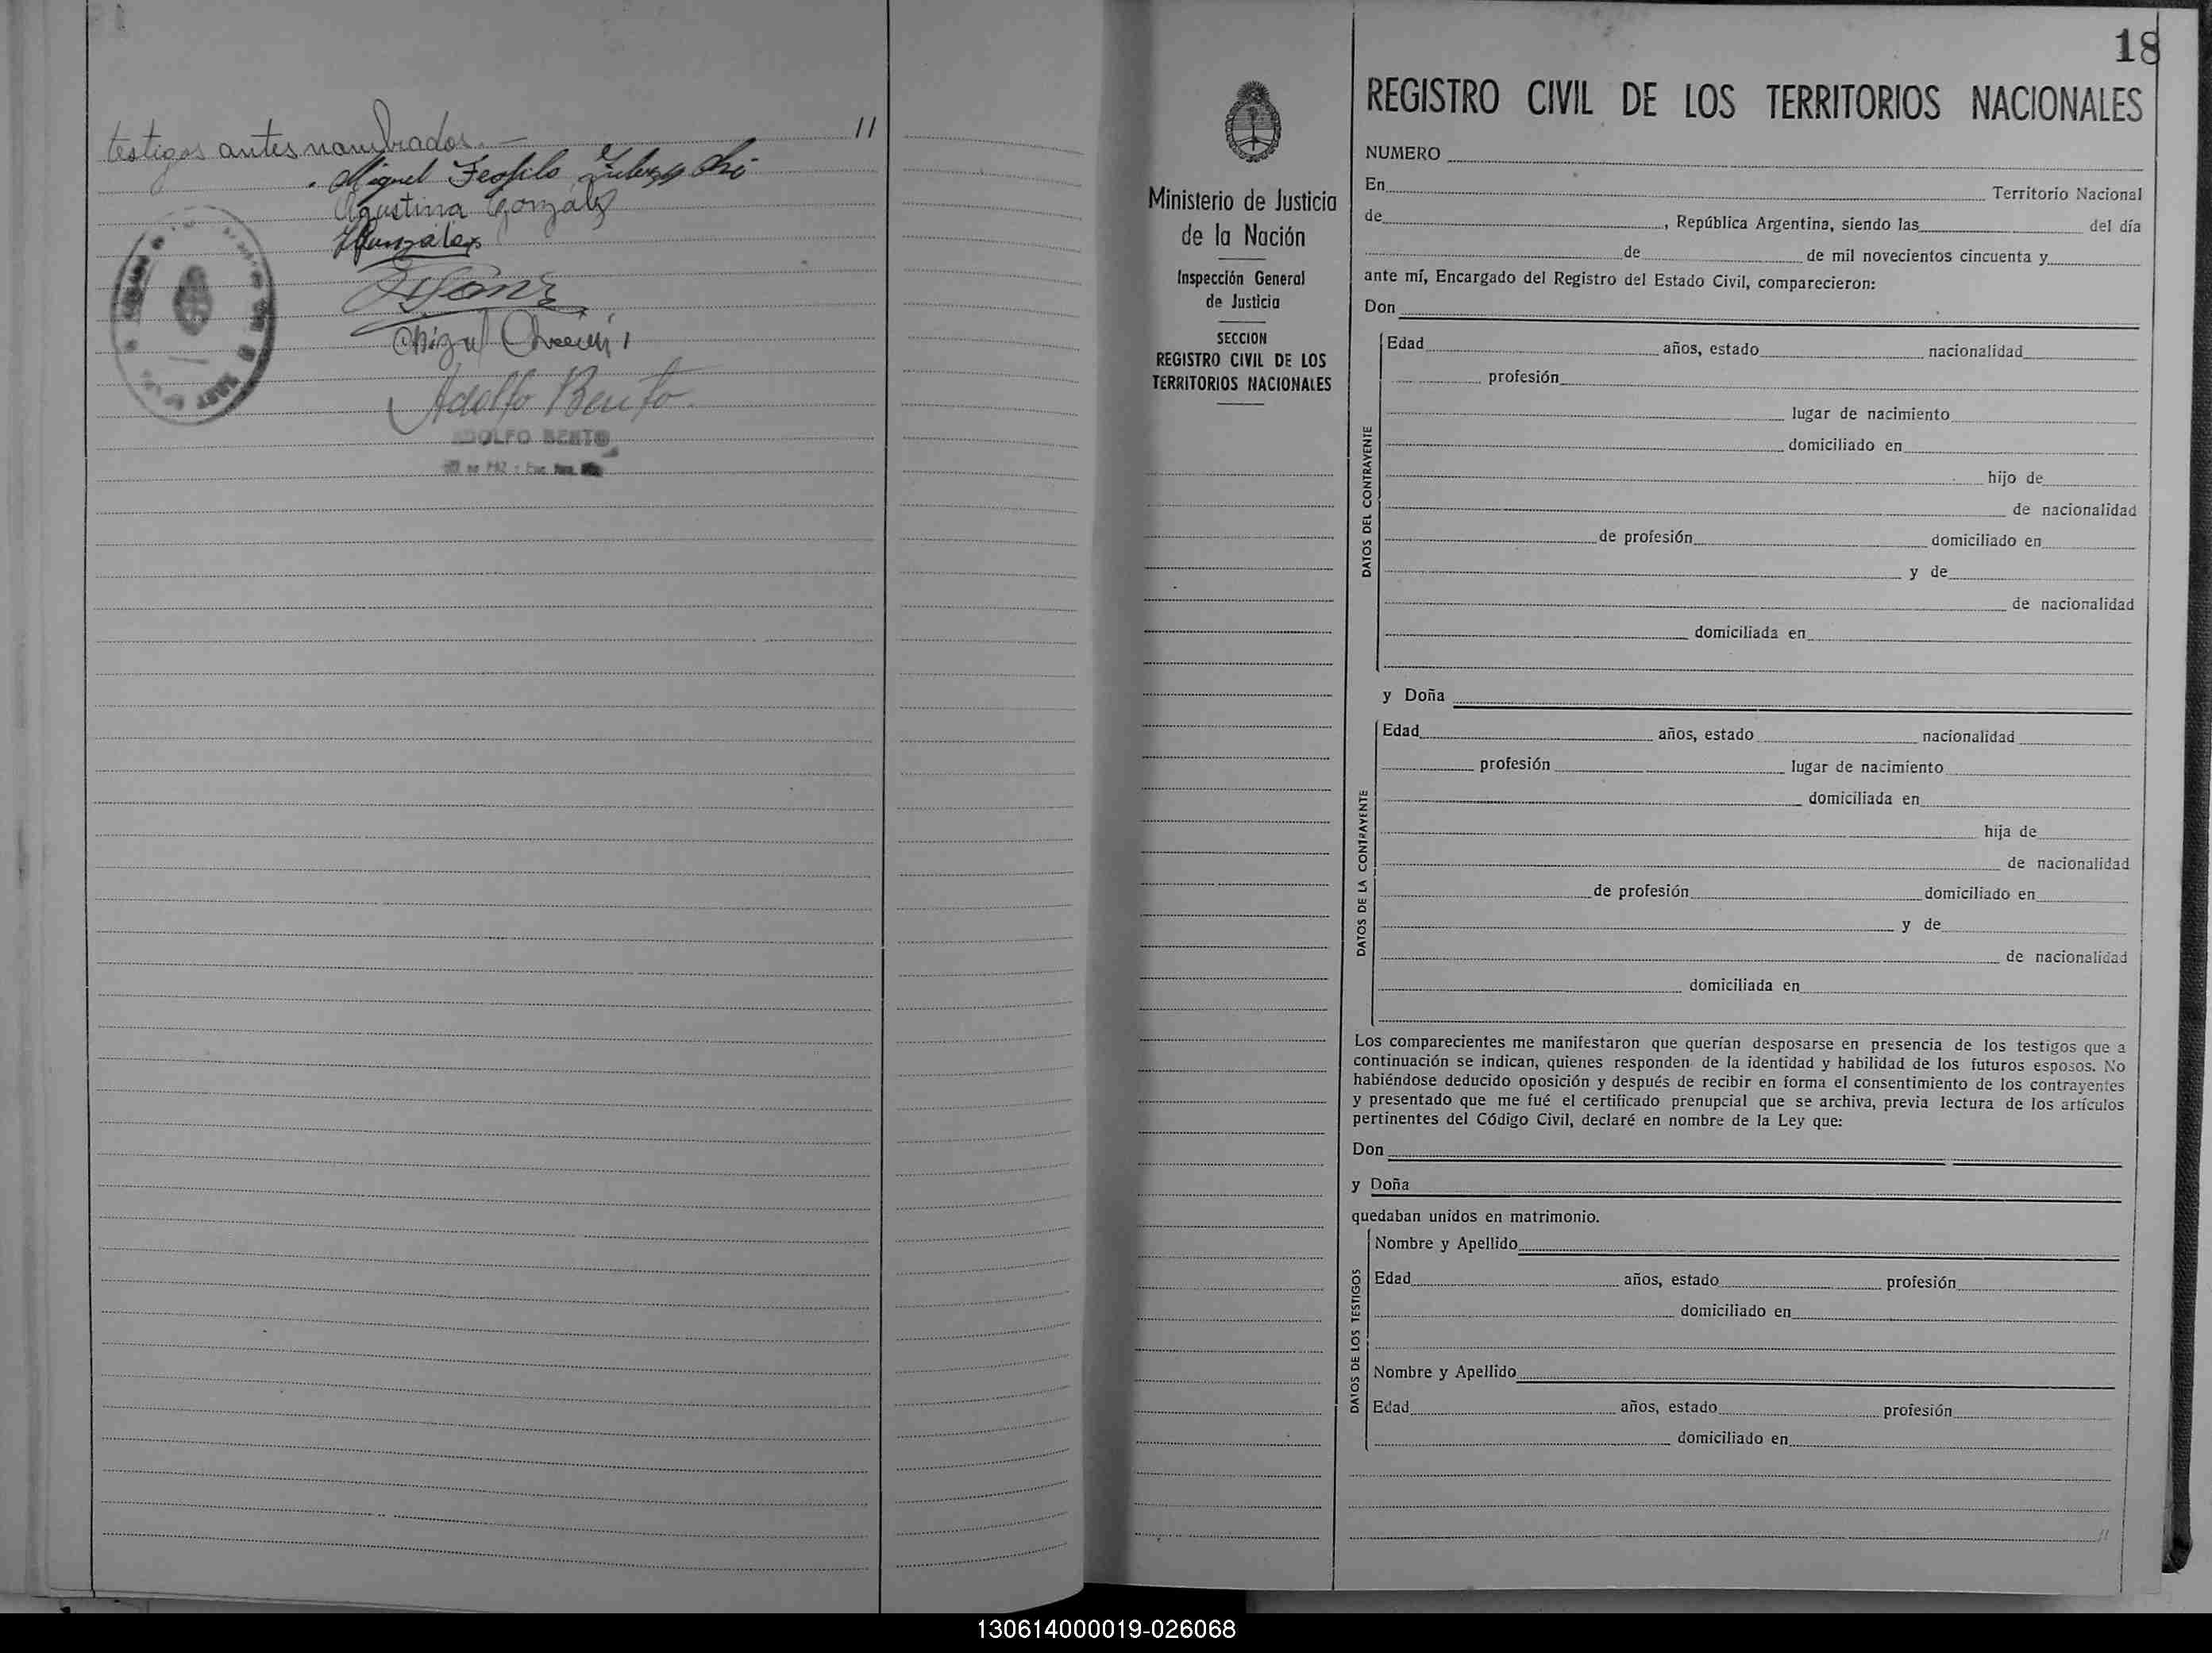 11
testigos antes nombrados.—
Miguel Teofilo
Agustina González
González
Adolfo Bento.
ADOLFO BENTO
18
REGISTRO CIVIL DE LOS TERRITORIOS NACIONALES
Ministerio de Justicia
de la Nación
Inspección General
de Justicia
SECCION
REGISTRO CIVIL DE LOS
TERRITORIOS NACIONALES
NUMERO
En Territorio Nacional
de , República Argentina, siendo las del día
de de mil novecientos cincuenta y
ante mí, Encargado del Registro del Estado Civil, comparecieron:
Don
DATOS DEL CONTRAYENTE
Edad años, estado nacionalidad
profesión
lugar de nacimiento
domiciliado en
hijo de
de nacionalidad
de profesión domiciliado en
y de
de nacionalidad
domiciliada en
y Doña
DATOS DE LA CONTRAYENTE
Edad años, estado nacionalidad
profesión lugar de nacimiento
domiciliada en
hija de
de nacionalidad
de profesión domiciliado en
y de
de nacionalidad
domiciliada en
Los comparecientes me manifestaron que querían desposarse en presencia de los testigos que a
continuación se indican, quienes responden de la identidad y habilidad de los futuros esposos. No
habiéndose deducido oposición y después de recibir en forma el consentimiento de los contrayentes
y presentado que me fué el certificado prenupcial que se archiva, previa lectura de los artículos
pertinentes del Código Civil, declaré en nombre de la Ley que:
Don
y Doña
quedaban unidos en matrimonio.
DATOS DE LOS TESTIGOS
Nombre y Apellido
Edad años, estado profesión
domiciliado en
Nombre y Apellido
Edad años, estado profesión
domiciliado en
130614000019-026068